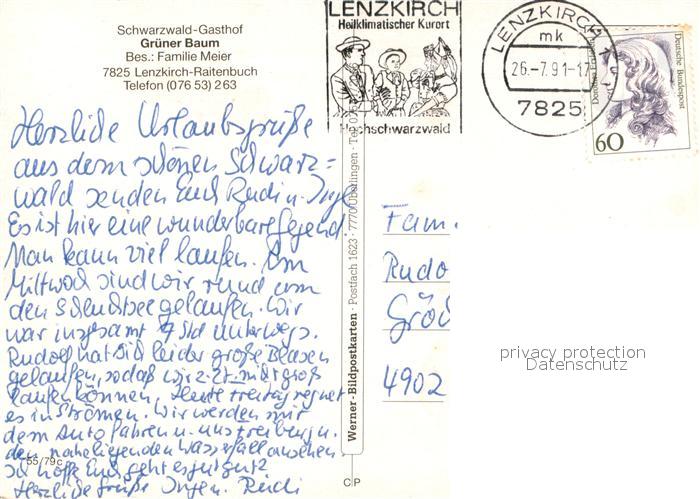 Schwarzwald-Gasthof
Grüner Baum
Bes.: Familie Meier
7825 Lenzkirch-Raitenbuch
Telefon (0 76 53) 2 63
LENZKIRCH
Heilklimatischer Kurort
Hochschwarzwald
LENZKIRCH
mk
26.-7.91-17
7825
Deutsche Bundespost
60
Herzliche Urlaubsgrüße
aus dem schönen Schwarz=
wald senden Euch Rudi u. Inge
Es ist hier eine wunderbare Gegend.
Man kann viel laufen. Am
Mittwoch sind wir rund um
den Schluchsee gelaufen. Wir
war insgesamt 7 Std unterwegs.
Rudolf hat sich leider große Blasen
gelaufen, sodaß wir z. Zt. nicht groß
laufen können. Heute Freitag regnet
es in Strömen. Wir werden mit
dem Auto fahren u. uns Freiburg u.
den naheliegenden Wasserfall ansehen.
Ich hoffe Euch geht es gut
Herzliche Grüße Inge u. Rudi
55/79c
Werner-Bildpostkarten · Postfach 1623 · 7770 Überlingen · Tel.
CP
Fam.
Rudo
Gröd
4902
privacy protection
Datenschutz